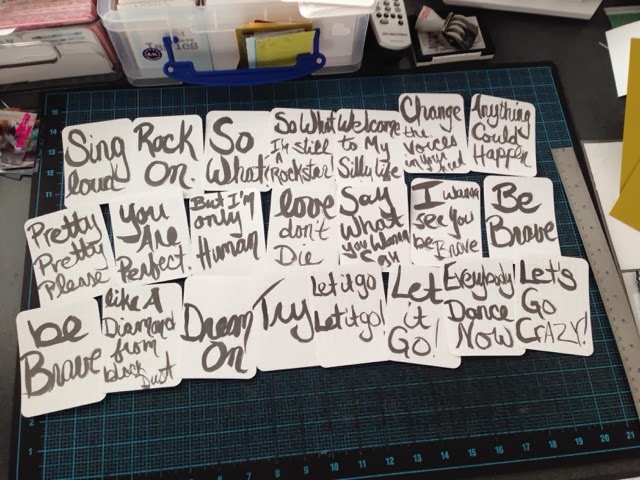 Sing
loud
Rock
On.
So
What
So What
I'm still
A
Rockstar
Welcome
to My
Silly Life
Change
the
Voices
in your
head
Anything
Could
Happen
Pretty
Pretty
Please
You
Are
Perfect
But I'm
only
Human
love
don't
Die
Say
What
You Wanna
Say
I wanna
see you
be Brave
Be
Brave
be
Brave
like A
Diamond
from
black
Dust
Dream
On
Try
Let it go
Let it go!
Let
it
Go!
Everybody
Dance
Now
Let's
Go
CRAZY!
15
14
13
11
2
1
6
7
8
9
10
11
12
13
14
15
16
17
18
19
20
21